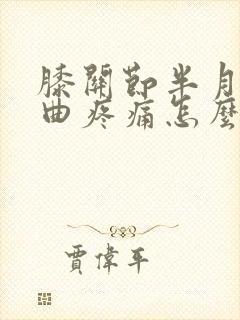 膝關節半月
曲疼痛怎麼
賈偉平